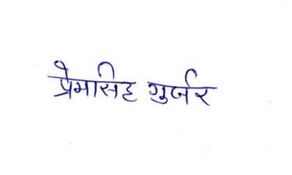 प्रेमसिंह गुर्जर